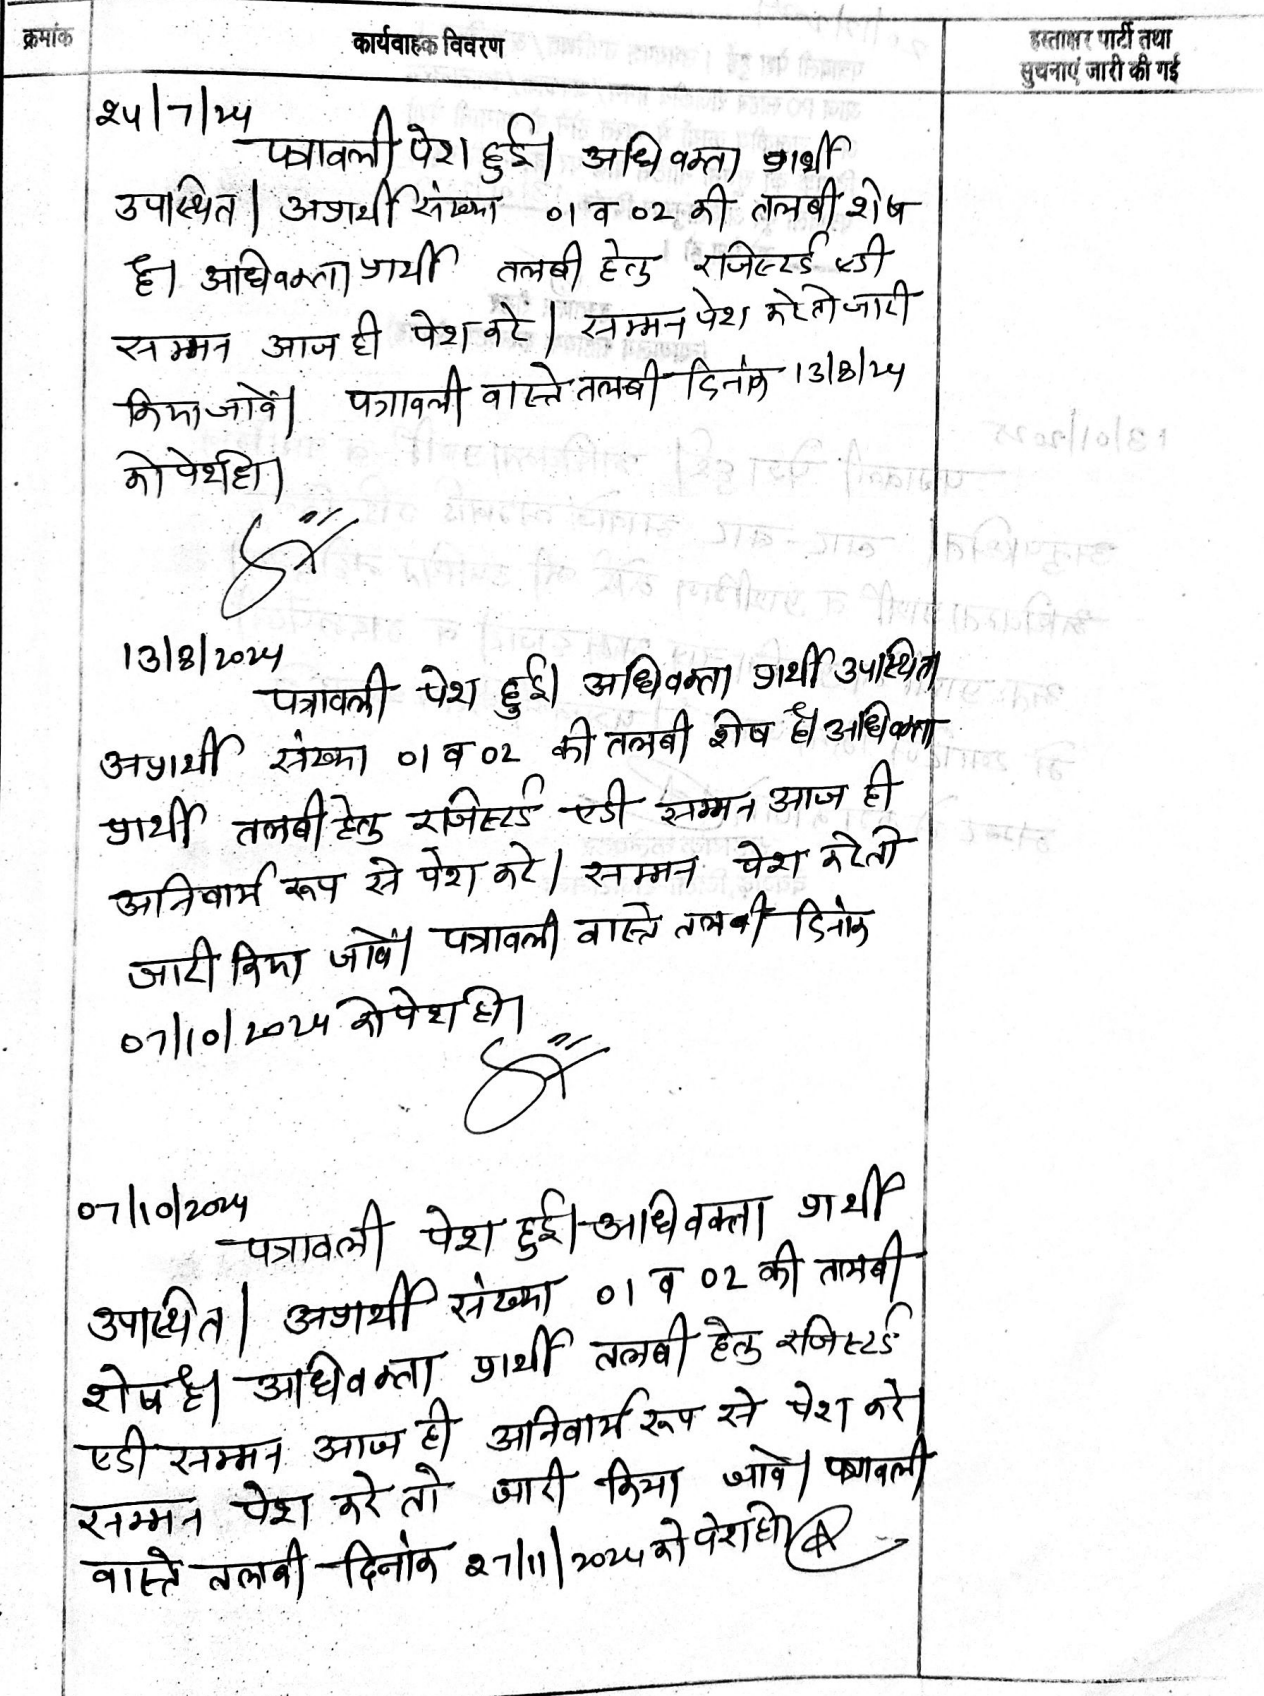 क्रमांक
कार्यवाहक विवरण
हस्ताक्षर पार्टी तथा
सुचनाएं जारी की गई
24/7/24
पत्रावली पेश हुई। अधिवक्ता प्रार्थी
उपस्थित। अप्रार्थी संख्या 01 व 02 की तलबी शेष
है। अधिवक्ता प्रार्थी तलबी हेतु रजिस्टर्ड एडी
सम्मन आज ही पेश करे। सम्मन पेश करे तो जारी
किया जावें। पत्रावली वास्ते तलबी दिनांक 13/8/24
को पेश हो।
13/8/2024
पत्रावली पेश हुई। अधिवक्ता प्रार्थी उपस्थित।
अप्रार्थी संख्या 01 व 02 की तलबी शेष है। अधिवक्ता
प्रार्थी तलबी हेतु रजिस्टर्ड एडी सम्मन आज ही
अनिवार्य रूप से पेश करे। सम्मन पेश करे तो
जारी किया जावें। पत्रावली वास्ते तलबी दिनांक
07/10/2024 को पेश हो।
07/10/2024
पत्रावली पेश हुई। अधिवक्ता प्रार्थी
उपस्थित। अप्रार्थी संख्या 01 व 02 की तलबी
शेष है। अधिवक्ता प्रार्थी तलबी हेतु रजिस्टर्ड
एडी सम्मन आज ही अनिवार्य रूप से पेश करे।
सम्मन पेश करे तो जारी किया जावे। पत्रावली
वास्ते तलबी दिनांक 27/11/2024 को पेश हो।